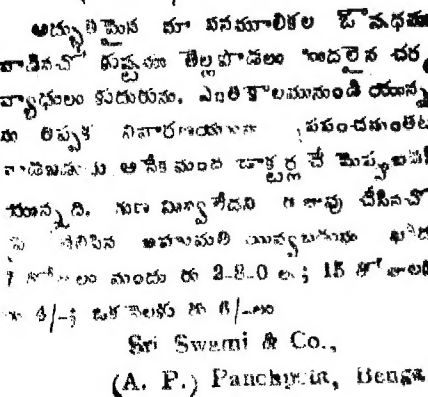 అద్భుతమైన మా వనమూలికల ఔషధము
వాడినచో కుష్టము తెల్ల పొడలు మొదలైన చర్మ
వ్యాధులు కుదురును. ఎంత కాలమునుండి యున్న
ను తప్పక నివారణయగును ప్రపంచమంతట
వాడబడుచు అనేకమంది డాక్టర్ల చే మెప్పుబడసి
యున్నది. గుణ మివ్వలేదని రుజువు చేసిన
బహుమతి యివ్వబడును
మందు రు 2-8-0 లు; 15
4/-; ఒక నెలకు రు 6/-లు
Sri Swami & Co.,
(A. P.)